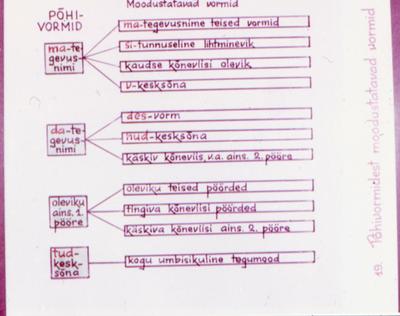 Moodustatavad vormid
PÕHI-
VORMID
ma-te-
gevus-
nimi
ma-tegevusnime teised vormid
si-tunnuseline lihtminevik
kaudse kõneviisi olevik
v-kesksõna
da-te-
gevus-
nimi
des-vorm
nud-kesksõna
käskiv kõneviis, v.a. ains. 2. pööre
oleviku
ains. 1.
pööre
oleviku teised pöörded
tingiva kõneviisi pöörded
käskiva kõneviisi ains. 2. pööre
tud-
kesk-
sõna
kogu umbisikuline tegumood
19. Põhivormidest moodustatavad vormid